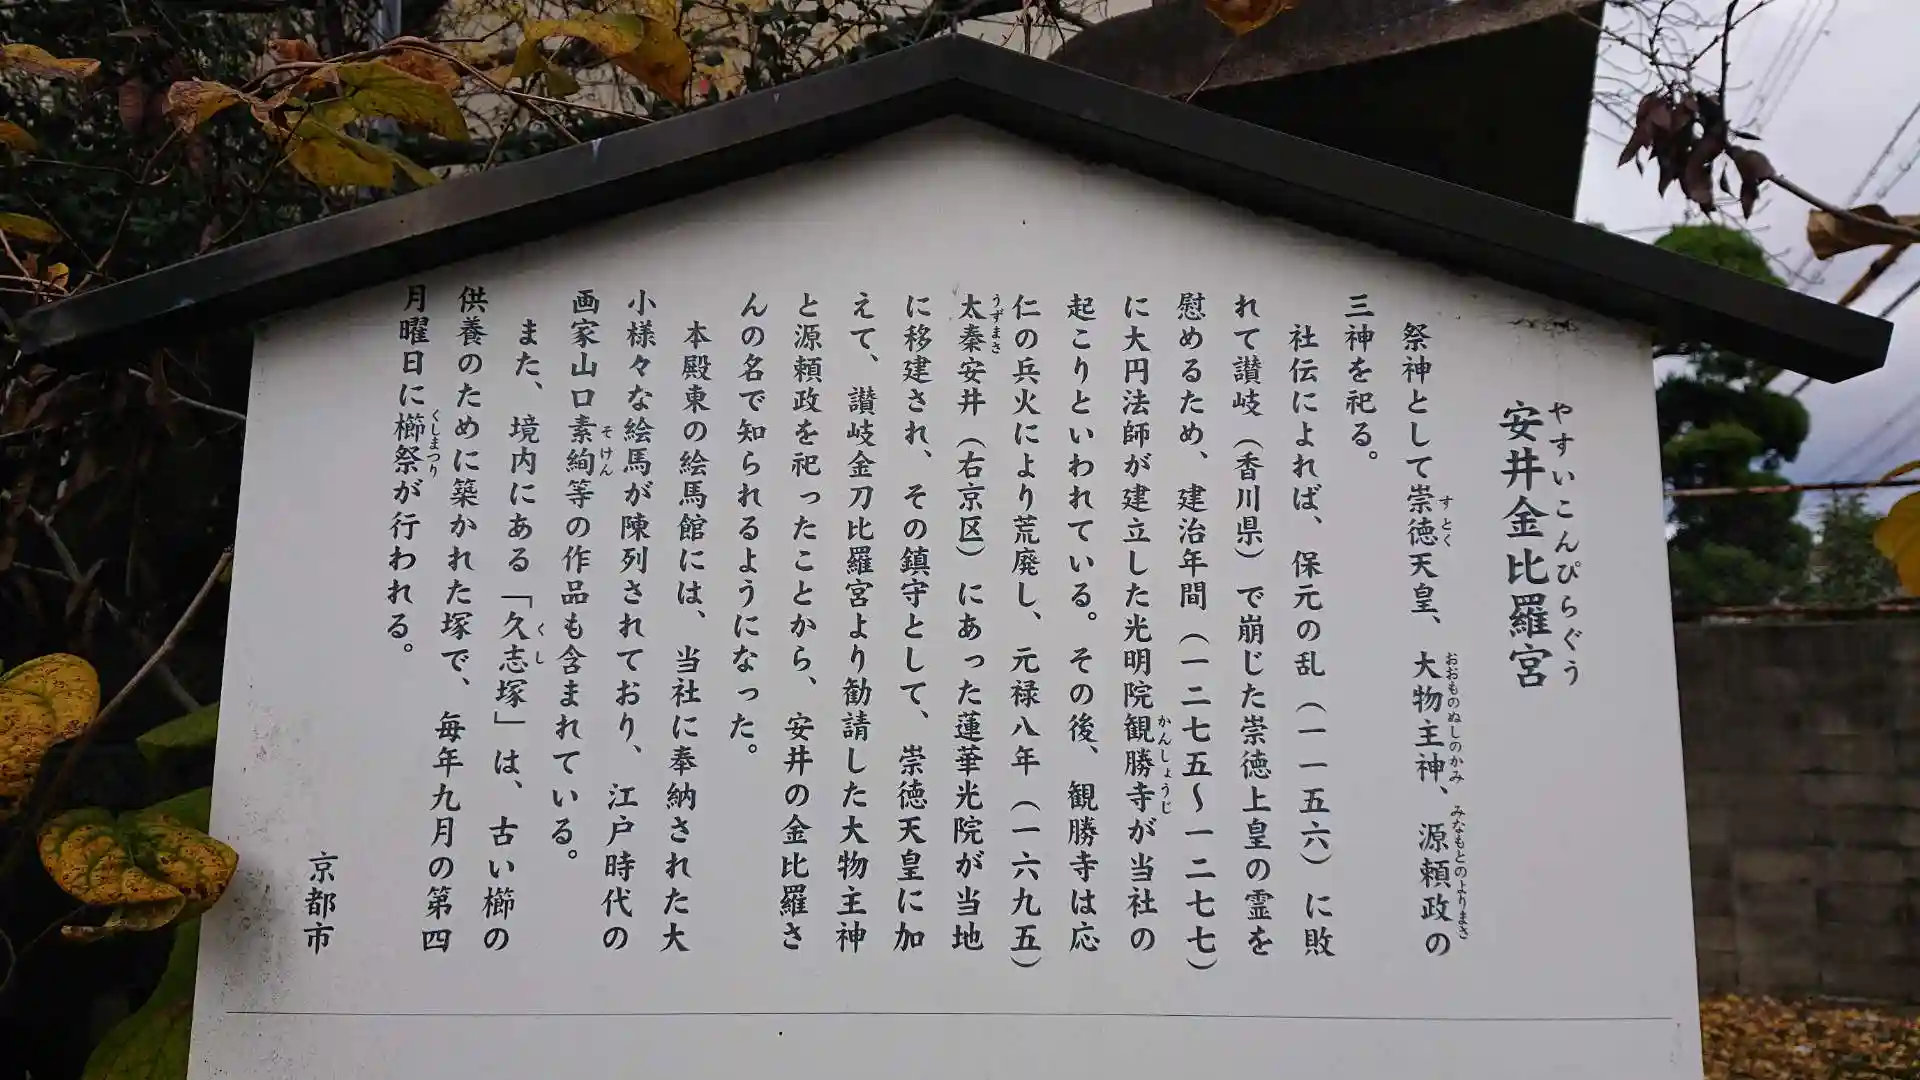 安井金比羅宮
やすいこんぴらぐう
祭神として崇徳天皇、大物主神、源頼政の
すとく
おおものぬしのかみ
みなもとのよりまさ
三神を祀る。
社伝によれば、保元の乱（一一五六）に敗
れて讃岐（香川県）で崩じた崇徳上皇の霊を
慰めるため、建治年間（一二七五〜一二七七）
に大円法師が建立した光明院観勝寺が当社の
かんしょうじ
起こりといわれている。その後、観勝寺は応
仁の兵火により荒廃し、元禄八年（一六九五）
太秦安井（右京区）にあった蓮華光院が当地
うずまさ
に移建され、その鎮守として、崇徳天皇に加
えて、讃岐金刀比羅宮より勧請した大物主神
と源頼政を祀ったことから、安井の金比羅さ
んの名で知られるようになった。
本殿東の絵馬館には、当社に奉納された大
小様々な絵馬が陳列されており、江戸時代の
画家山口素絢等の作品も含まれている。
そけん
また、境内にある「久志塚」は、古い櫛の
くし
供養のために築かれた塚で、毎年九月の第四
月曜日に櫛祭が行われる。
くしまつり
京都市